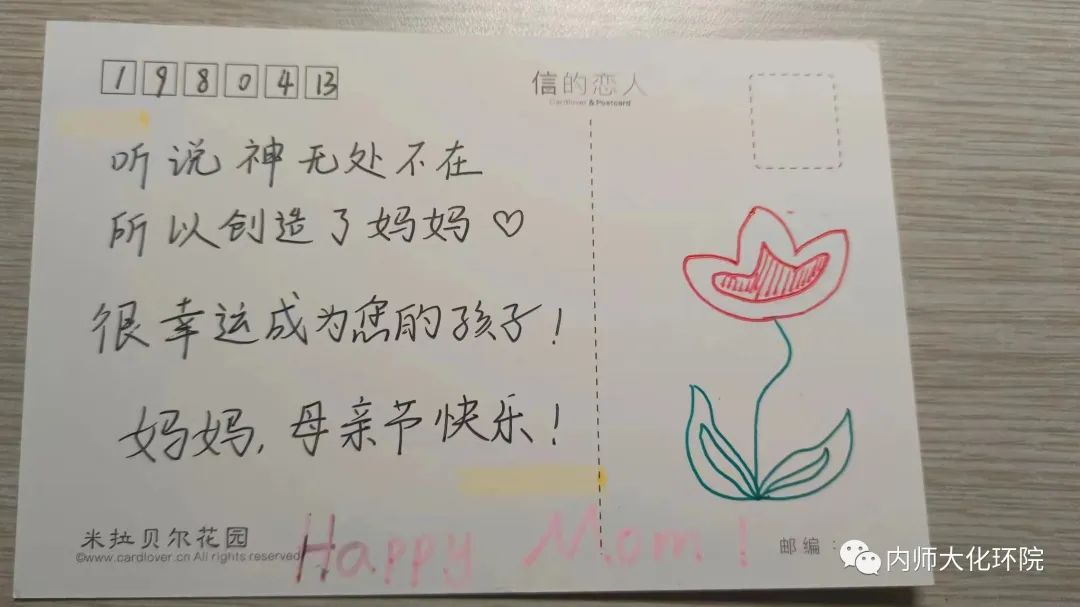 1 9 8 0 4 13
信的恋人
Cardlover & Postcard
听说神无处不在
所以创造了妈妈♡
很幸运成为您的孩子!
妈妈,母亲节快乐!
米拉贝尔花园
©www.cardlover.cn All rights reserved
Happy Mom!
邮编:
内师大化环院